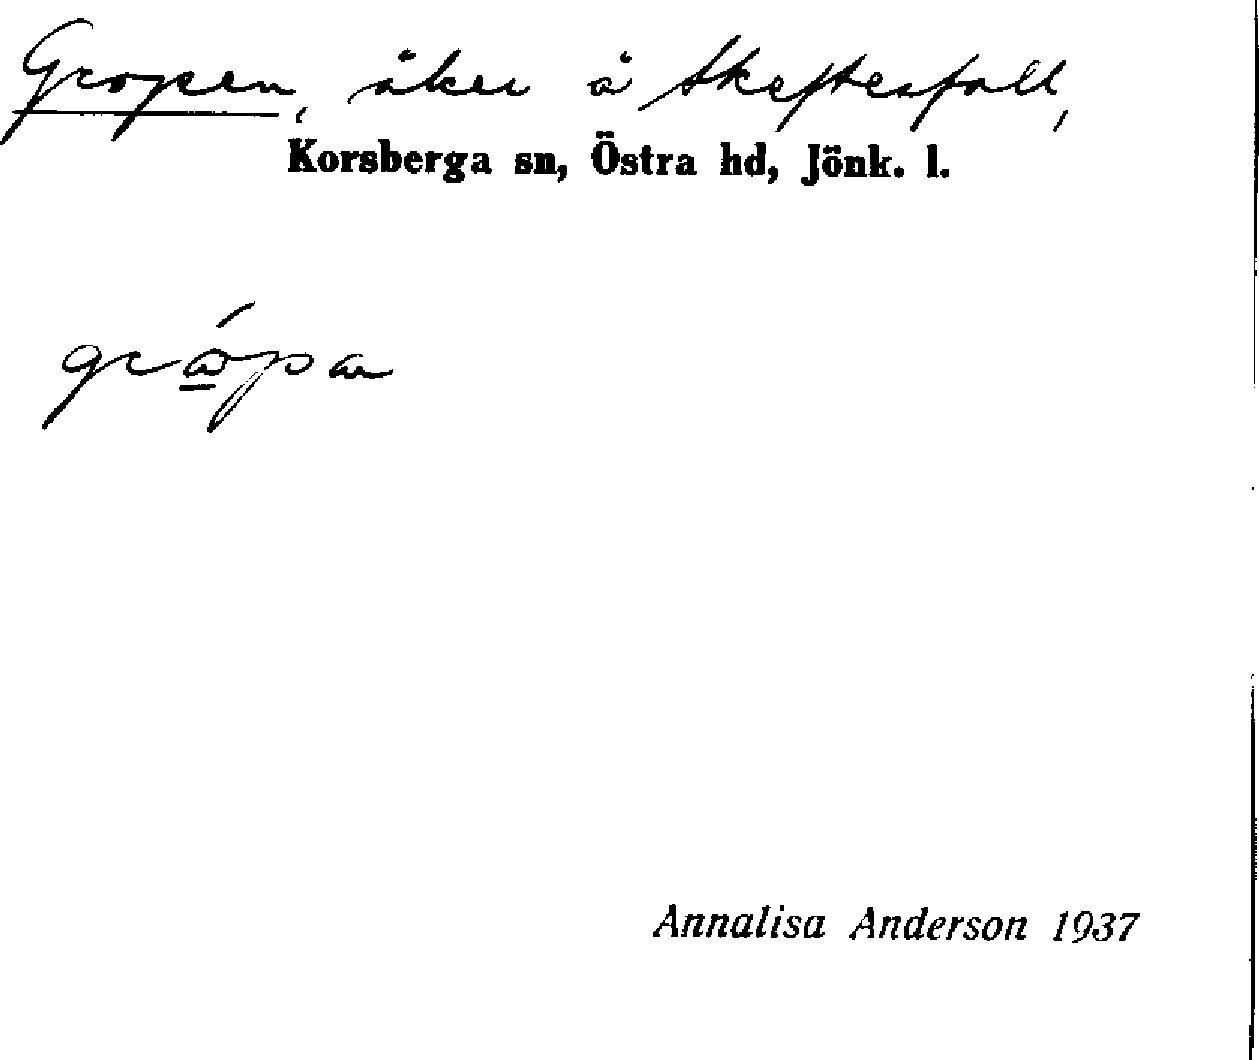 Gropen, åker å Skeftesfall,
Korsberga sn, Östra hd, Jönk. l.
grώ̲pan
Annalisa Anderson 1937